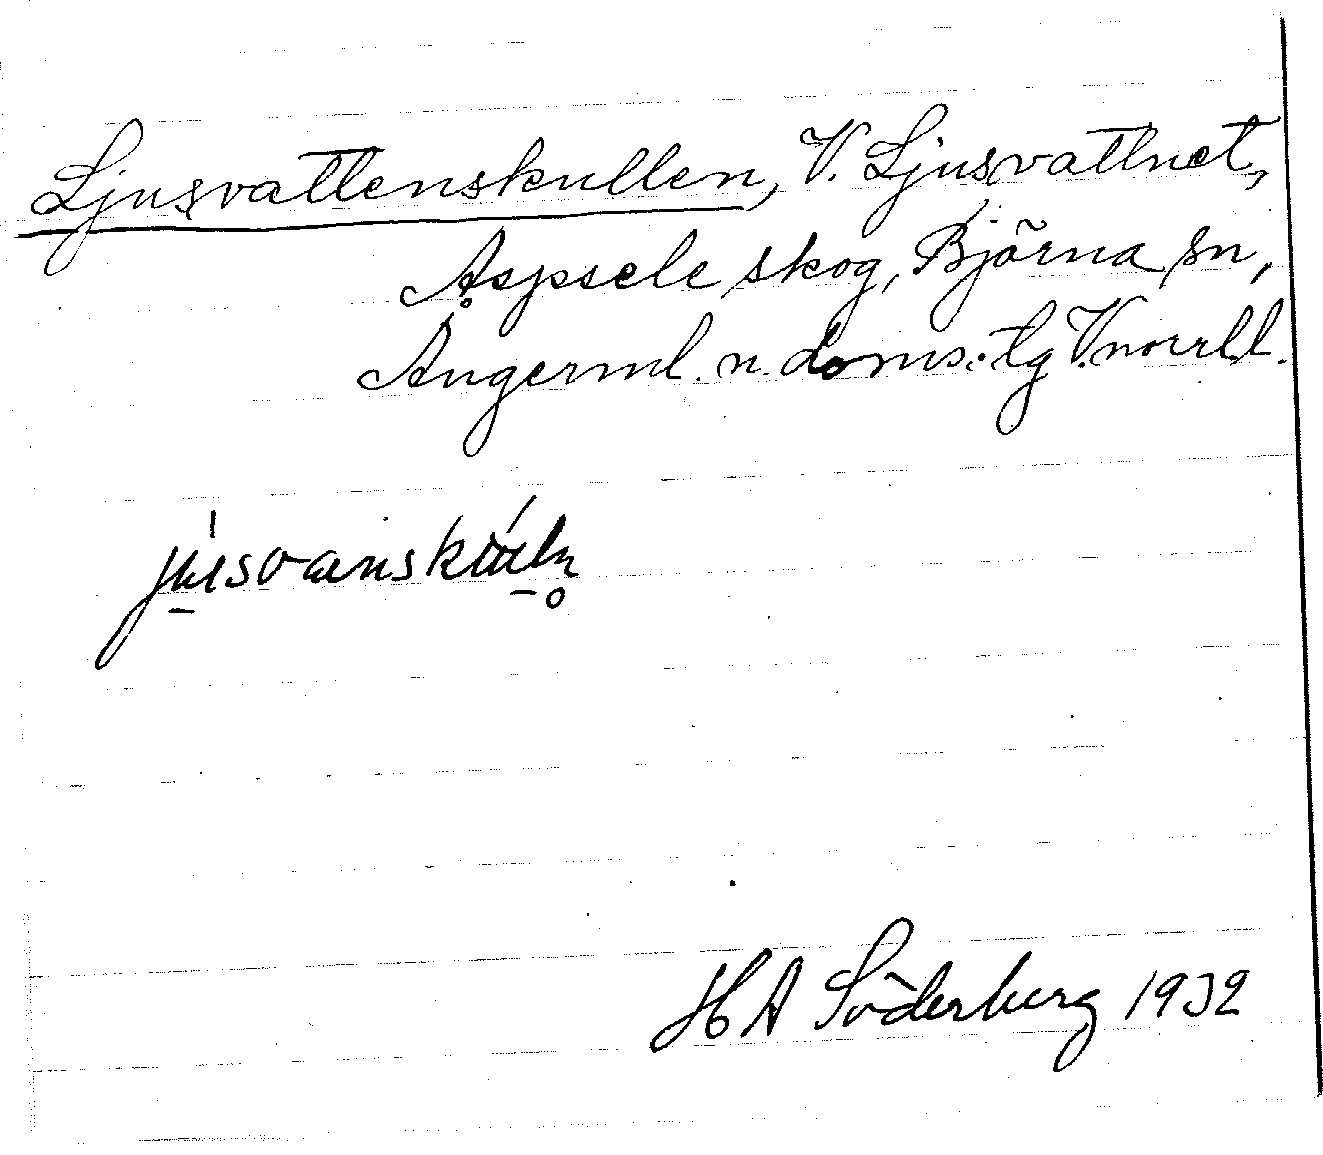 Ljusvattenskullen, V. Ljusvattnet,
Aspsele skog, Björna sn,
Ångerml. n. doms. tg V.norrl.l.
H A Söderberg 1932